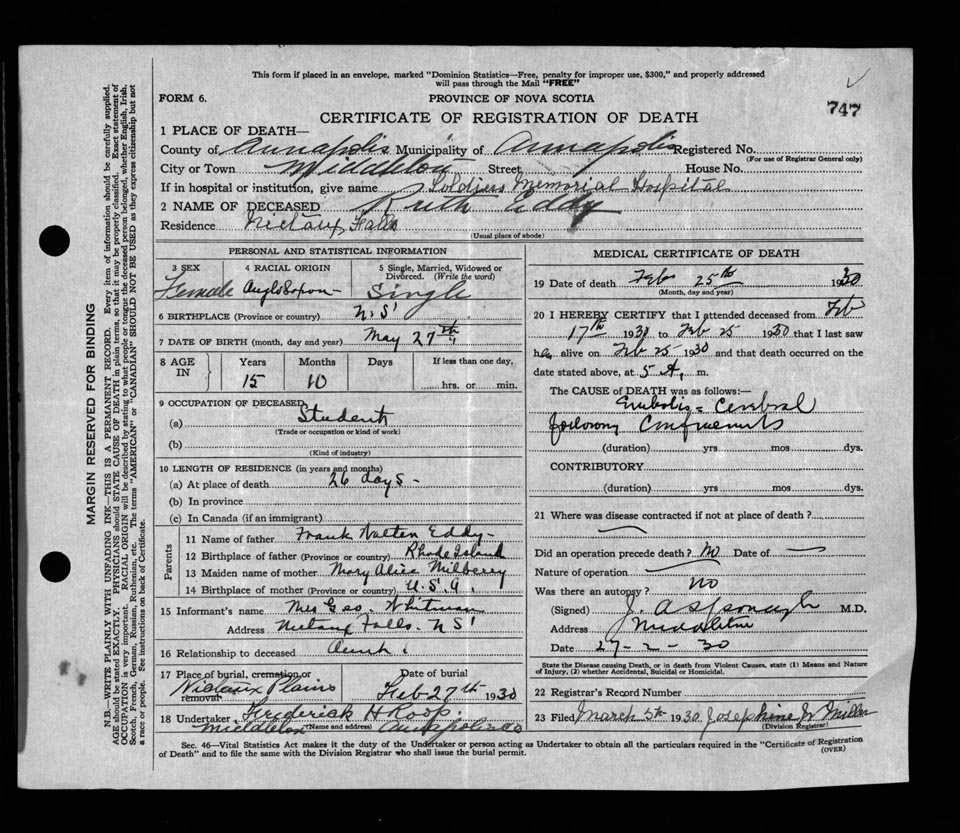 This form if placed in an envelope, marked "Dominion Statistics—Free, penalty for improper use, $300," and properly addressed
will pass through the Mail "FREE"
FORM 6.
PROVINCE OF NOVA SCOTIA
747
CERTIFICATE OF REGISTRATION OF DEATH
1 PLACE OF DEATH—
County of Annapolis Municipality of Annapolis Registered No.
(For use of Registrar General only)
City or Town Middleton Street House No.
If in hospital or institution, give name Soldiers Memorial Hospital
2 NAME OF DECEASED Ruth Eddy
Residence Nictaux Falls
(Usual place of abode)
PERSONAL AND STATISTICAL INFORMATION
3 SEX Female
4 RACIAL ORIGIN Anglo Saxon
5 Single, Married, Widowed or Divorced. (Write the word) Single
6 BIRTHPLACE (Province or country) N.S.
7 DATE OF BIRTH (month, day and year) May 27th
8 AGE IN Years 15 Months 10 Days If less than one day, hrs. or min.
9 OCCUPATION OF DECEASED
(a) Student
(Trade or occupation or kind of work)
(b)
(Kind of industry)
10 LENGTH OF RESIDENCE (in years and months)
(a) At place of death 26 days -
(b) In province
(c) In Canada (if an immigrant)
Parents
11 Name of father Frank Walten Eddy -
12 Birthplace of father (Province or country) Rhode Island
13 Maiden name of mother Mary Alice Milberry
14 Birthplace of mother (Province or country) U.S.A.
15 Informant's name Mrs Geo. Whitman
Address Nictaux Falls. NS
16 Relationship to deceased Aunt.
17 Place of burial, cremation or removal Nictaux Plains
Date of burial Feb 27th 1930
18 Undertaker Frederick H Roop
(Name and address)
Middleton Annapolis Co
MEDICAL CERTIFICATE OF DEATH
19 Date of death Feb 25th 1930
(Month, day and year)
20 I HEREBY CERTIFY that I attended deceased from Feb
17th 1930 to Feb 25 1930 that I last saw
her alive on Feb 25 1930 and that death occurred on the
date stated above, at 5 A. m.
The CAUSE of DEATH was as follows:—
Embolis - Cerebral
following Confinements
(duration) yrs mos dys.
CONTRIBUTORY
(duration) yrs mos dys.
21 Where was disease contracted if not at place of death?
Did an operation precede death? No Date of
Nature of operation
Was there an autopsy? No
(Signed) J. A. M.D.
Address Middleton
Date 27-2-30
State the Disease causing Death, or in death from Violent Causes, state (1) Means and Nature
of Injury, (2) whether Accidental, Suicidal or Homicidal.
22 Registrar's Record Number
23 Filed March 5th 1930. Josephine W Miller
(Division Registrar)
Sec. 46—Vital Statistics Act makes it the duty of the Undertaker or person acting as Undertaker to obtain all the particulars required in the "Certificate of Registration
of Death" and to file the same with the Division Registrar who shall issue the burial permit.
(OVER)
MARGIN RESERVED FOR BINDING
N.B.—WRITE PLAINLY WITH UNFADING INK—THIS IS A PERMANENT RECORD. Every item of information should be carefully supplied.
AGE should be stated EXACTLY. PHYSICIANS should STATE CAUSE OF DEATH in plain terms, so that it may be properly classified. Exact statement of
OCCUPATION is very important. RACIAL ORIGIN will be described by stating to what people or tongue the deceased person belonged, whether English, Irish,
Scotch, French, German, Russian, Ruthenian, etc. The terms "AMERICAN" or "CANADIAN" SHOULD NOT BE USED as they express citizenship but not
a race or people. See instructions on back of Certificate.